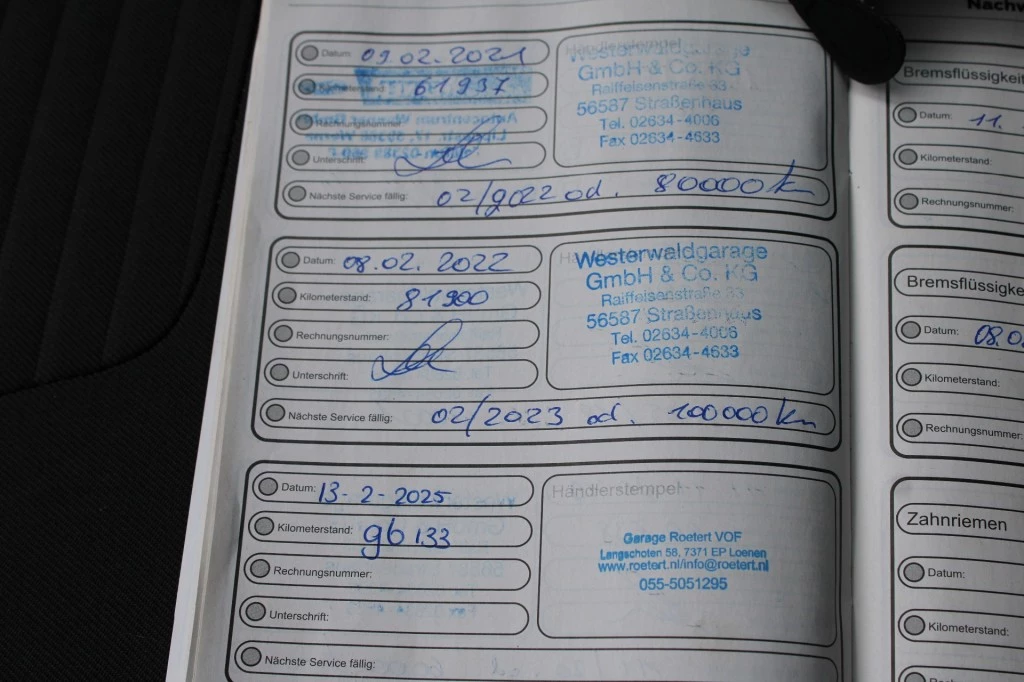 Nachw
Datum: 09.02.2021
61937
Unterschrift:
Nächste Service fällig: 02/2022 od. 80000 km
Händlerstempel
Westerwaldgarage
GmbH & Co. KG
Raiffeisenstraße 33
56587 Straßenhaus
Tel. 02634-4006
Fax 02634-4633
Datum: 08.02. 2022
Kilometerstand: 81900
Rechnungsnummer:
Unterschrift:
Nächste Service fällig: 02/2023 od. 100000 km
Westerwaldgarage
GmbH & Co. KG
Raiffeisenstraße 33
56587 Straßenhaus
Tel. 02634-4006
Fax 02634-4633
Datum: 13-2-2025
Kilometerstand: 96133
Rechnungsnummer:
Unterschrift:
Nächste Service fällig:
Händlerstempel
Garage Roetert VOF
Langschoten 58, 7371 EP Loenen
www.roetert.nl/info@roetert.nl
055-5051295
Bremsflüssigkeit
Datum: 11.
Kilometerstand:
Rechnungsnummer:
Bremsflüssigke
Datum: 08.0
Kilometerstand:
Rechnungsnummer:
Zahnriemen
Datum:
Kilometerstand: